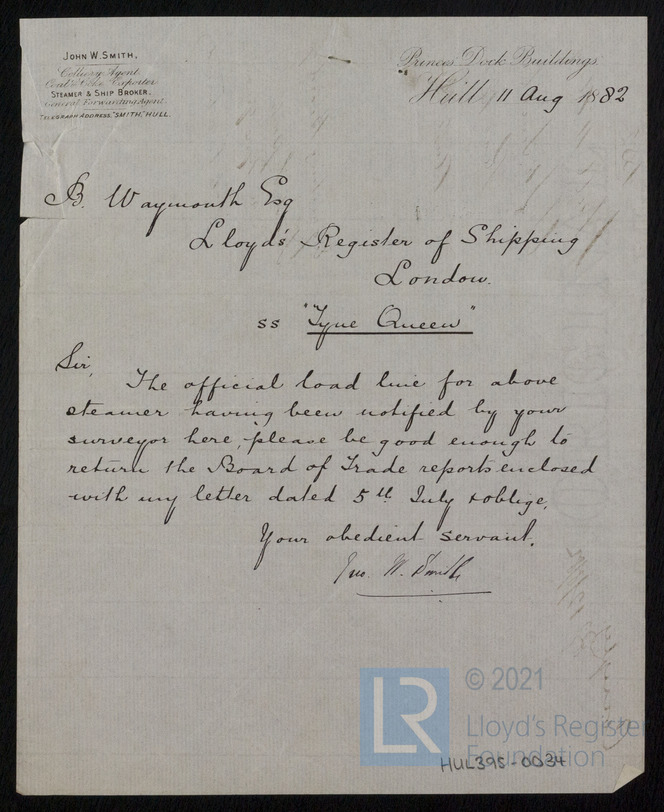 JOHN W. SMITH,
Colliery Agent
Coal & Coke Exporter
STEAMER & SHIP BROKER.
General Forwarding Agent.
TELEGRAPH ADDRESS, "SMITH," HULL.
Princes Dock Buildings.
Hull, 11 Aug 1882
B. Waymouth Esq
Lloyd's Register of Shipping
London.
ss "Tyne Queen"
Sir,
The official load line for above
steamer having been notified by your
surveyor here, please be good enough to
return the Board of Trade reports enclosed
with my letter dated 5th July & oblige,
Your obedient servant.
Jno. W. Smith
LR
© 2021
Lloyd's Register
Foundation
HUL395-0034